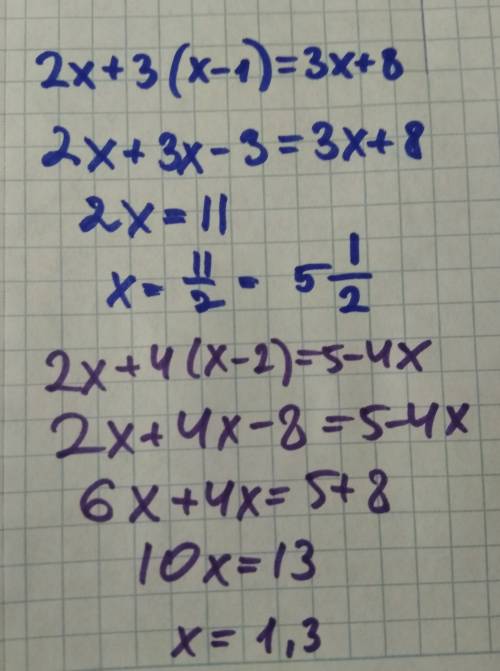 2x+3(x-1)=3x+8
2x+3x-3=3x+8
2x=11
x=11/2=5 1/2
2x+4(x-2)=5-4x
2x+4x-8=5-4x
6x+4x=5+8
10x=13
x=1,3